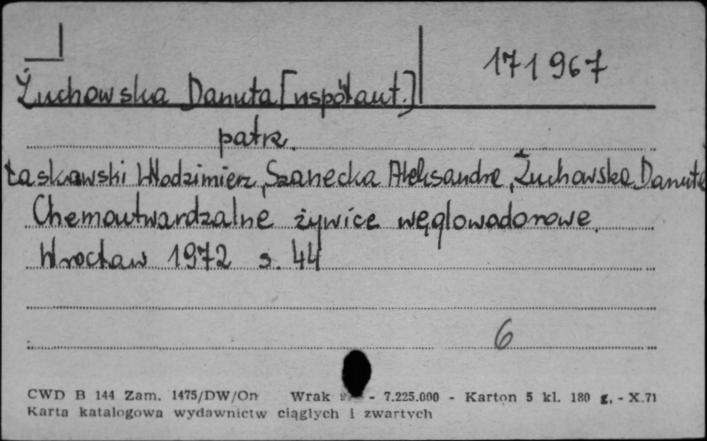 171967
Żuchowska Danuta [współaut.]
patrz
Łaskawski Włodzimierz, Szanecka Aleksandra, Żuchowska Danuta
Chemoutwardzalne żywice węglowodorowe.
Wrocław 1972 s. 44
6
CWD B 144 Zam. 1475/DW/On Wrak - 7.225.000 - Karton 5 kl. 180 g. - X.71
Karta katalogowa wydawnictw ciągłych i zwartych